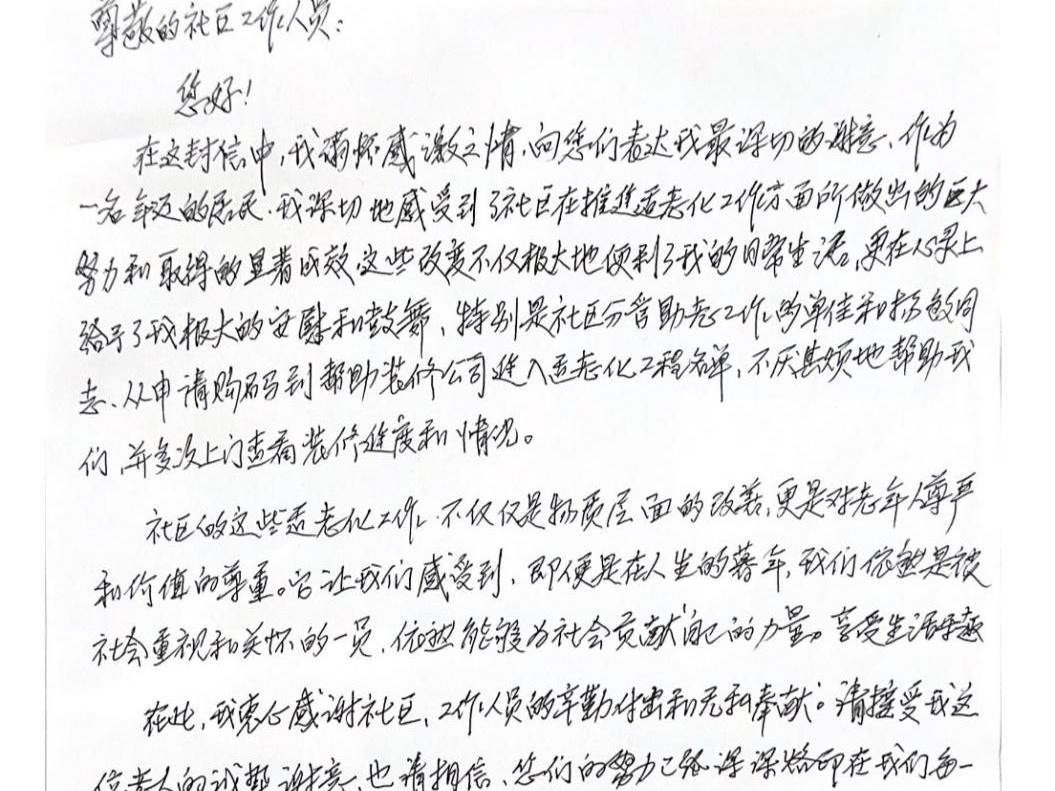 尊敬的社区工作人员:
您好!
在这封信中,我满怀感激之情,向您们表达我最深切的谢意。作为
一名年迈的居民,我深切地感受到了社区在推进适老化工作方面所做出的巨大
努力和取得的显著成效,这些改变不仅极大地便利了我的日常生活,更在心灵上
给予了我极大的安慰和鼓舞,特别是社区分管助老工作的单佳和杨敏同
志、从申请购码到帮助装修公司进入适老化工程名单,不厌其烦地帮助我
们,并多次上门查看装修进度和情况。
社区的这些适老化工作,不仅仅是物质层面的改善,更是对老年人尊严
和价值的尊重。它让我们感受到,即便是在人生的暮年,我们依然是被
社会重视和关怀的一员,依然能够为社会贡献自己的力量。享受生活乐趣
在此,我衷心感谢社区,工作人员的辛勤付出和无私奉献。请接受我这
位老人的诚挚谢意,也请相信,您们的努力已经深深烙印在我们每一